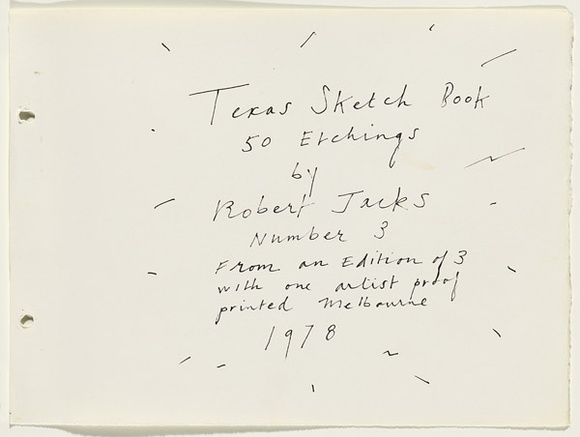 Texas Sketch Book
50 Etchings
by
Robert Jacks
Number 3
From an Edition of 3
with one artist proof
printed Melbourne
1978